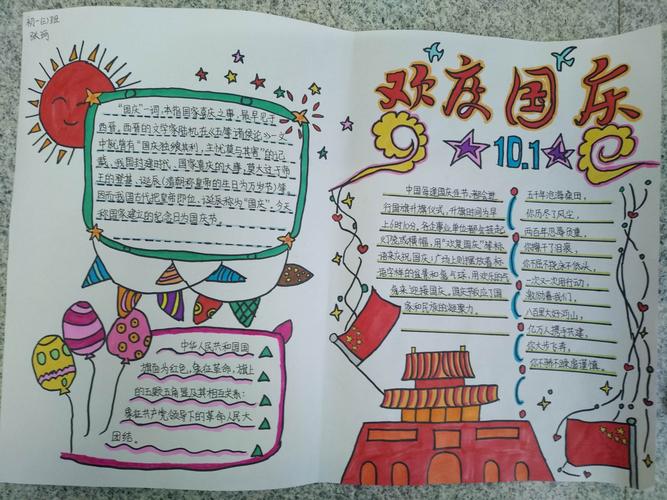 初一(3)班
张筠
欢度国庆
10.1
"国庆"一词,本指国家喜庆之事,最早见于
西晋。西晋的文学家陆机在《五等诸侯论》一
中就曾有"国庆独飨其利,主忧莫与其害"的记
载、我国封建时代、国家喜庆的大事,莫大过于帝
王的登基、诞辰(清朝称皇帝的生日为万岁节)等。
因而我国古代把皇帝即位、诞辰称为"国庆"。今天
称国家建立的纪念日为国庆节。
中华人民共和国国
旗面为红色,象征革命,旗上
的五颗五角星及其相互关系:
象征共产党领导下的革命人民大
团结。
中国每逢国庆佳节,都会举
行国旗升旗仪式,升旗时间为早
上6时10分,各企事业单位都会挂起
灯笼或横幅,用"欢度国庆"等标
语来庆祝国庆,广场上则摆放着标
语字样的盆景和氢气球,用欢乐的气
象来迎接国庆。国庆节放应了国
家和民族的凝聚力。
五千年沧海桑田,
你历尽了风尘,
两百年忍辱负重,
你撑下了日来,
你不屈不挠永不低头,
一次又一次用行动,
激励着我们,
八百里大好河山,
亿万人携手共建,
你大步飞奔,
你不骄不躁虚谨慎。